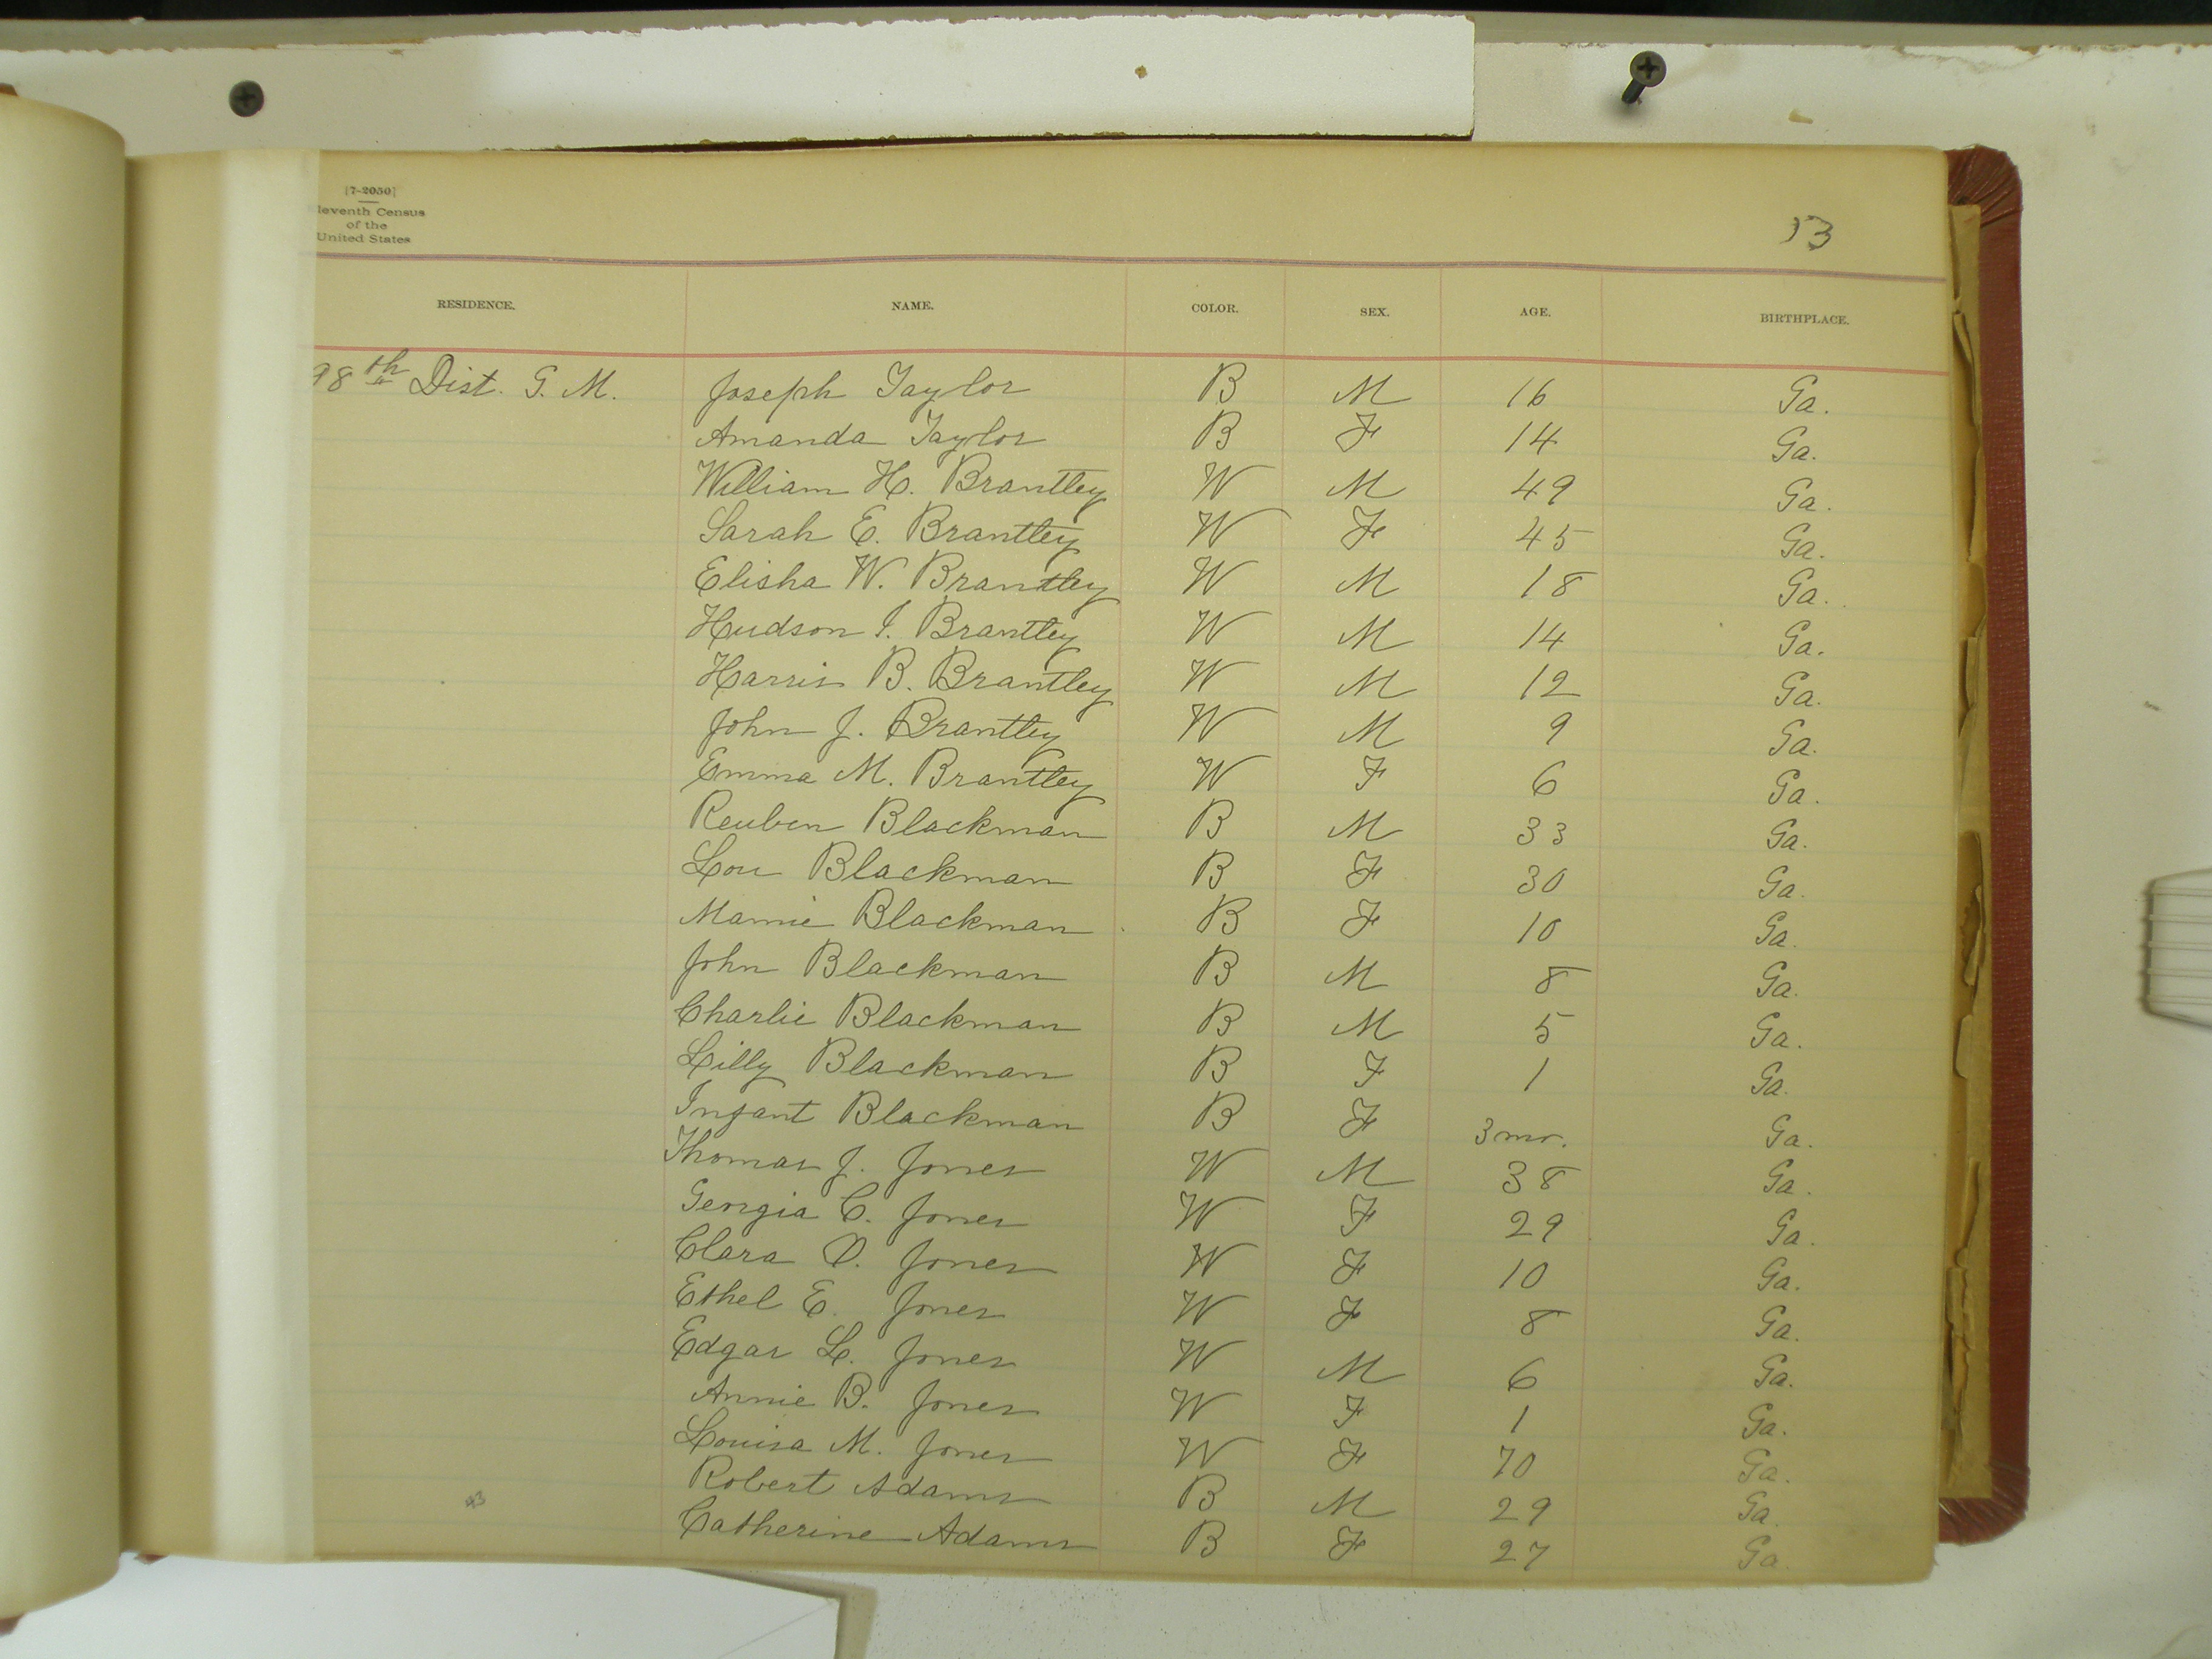 [7-2050]
leventh Census
of the
United States
13
RESIDENCE. NAME. COLOR. SEX. AGE. BIRTHPLACE.
98th Dist. G. M. Joseph Taylor B M 16 Ga.
Amanda Taylor B F 14 Ga.
William H. Brantley W M 49 Ga.
Sarah E. Brantley W F 45 Ga.
Elisha W. Brantley W M 18 Ga.
Hudson I. Brantley W M 14 Ga.
Harris B. Brantley W M 12 Ga.
John J. Brantley W M 9 Ga.
Emma M. Brantley W F 6 Ga.
Reuben Blackman B M 33 Ga.
Lou Blackman B F 30 Ga.
Mamie Blackman B F 10 Ga.
John Blackman B M 8 Ga.
Charlie Blackman B M 5 Ga.
Lilly Blackman B F 1 Ga.
Infant Blackman B F 3 mo. Ga.
Thomas J. Jones W M 38 Ga.
Georgia C. Jones W F 29 Ga.
Clara O. Jones W F 10 Ga.
Ethel E. Jones W F 8 Ga.
Edgar L. Jones W M 6 Ga.
Annie B. Jones W F 1 Ga.
Louisa M. Jones W F 70 Ga.
Robert Adams B M 29 Ga.
Catherine Adams B F 27 Ga.